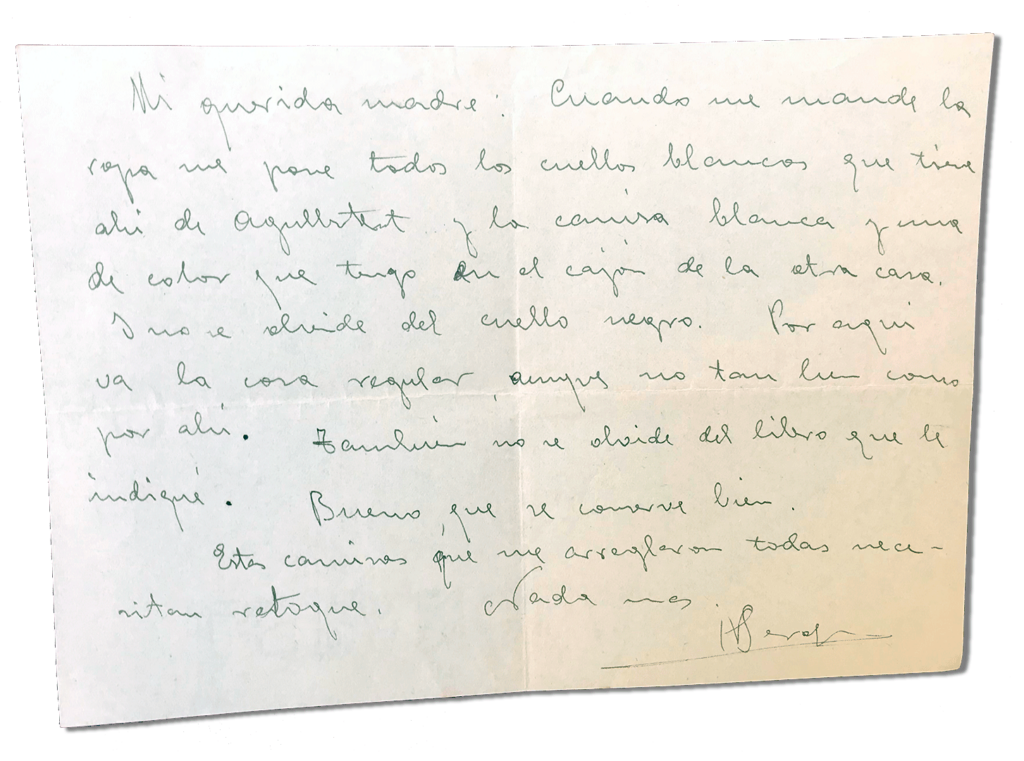 Mi querida madre: Cuando me mande la
ropa me pone todos los cuellos blancos que tiene
ahi de y la camisa blanca y una
de color que tengo en el cajón de la otra casa.
Y no se olvide del cuello negro. Por aqui
va la cosa regular, aunque no tan bien como
por ahi. También no se olvide del libro que le
indiqué. Bueno, que se conserve bien.
Estas camisas que me arreglaron todas nece-
sitan retoque. Nada mas.